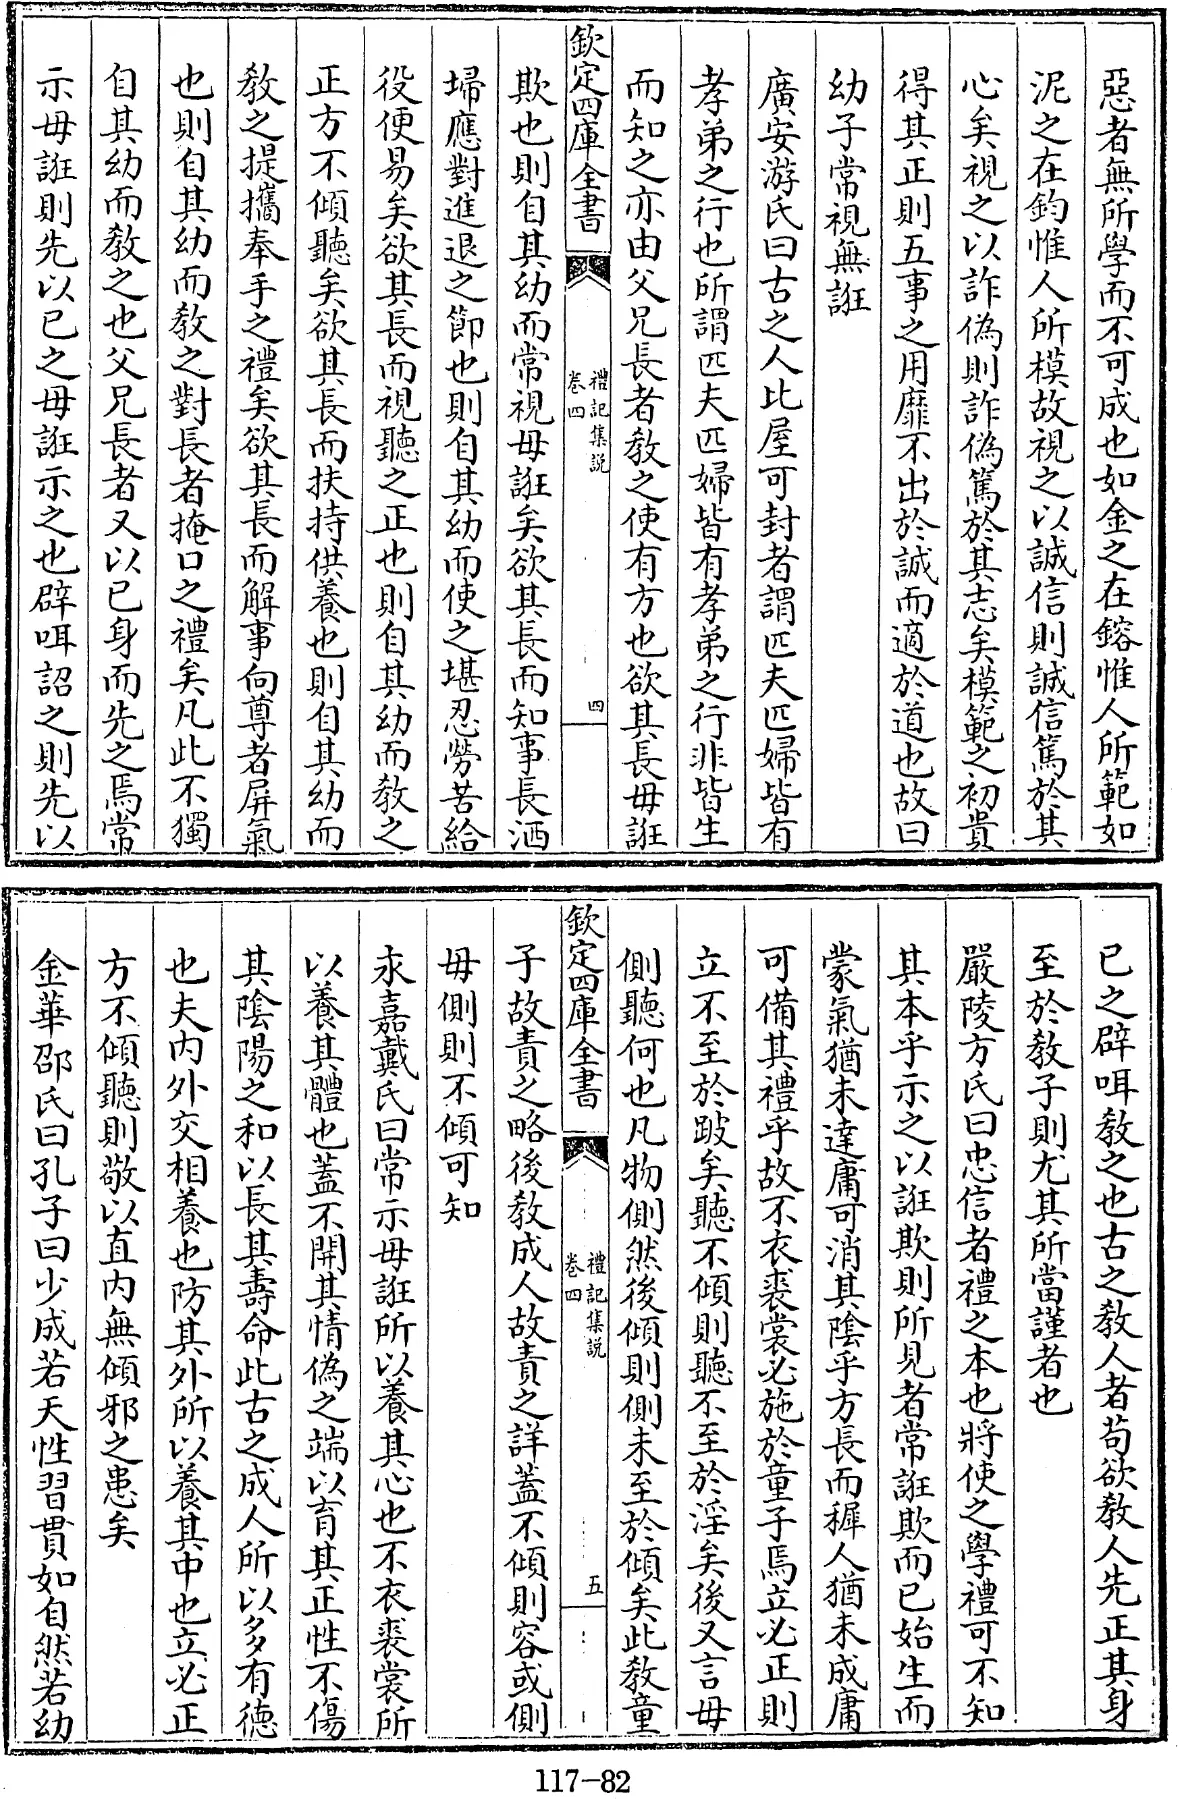 惡者無所學而不可成也如金之在鎔惟人所範如
泥之在鈞惟人所模故視之以誠信則誠信篤於其
心矣視之以詐偽則詐偽篤於其志矣模範之初貴
得其正則五事之用靡不出於誠而適於道也故曰
幼子常視無誑
廣安游氏曰古之人比屋可封者謂匹夫匹婦皆有
孝弟之行也所謂匹夫匹婦皆有孝弟之行非皆生
而知之亦由父兄長者教之使有方也欲其長毋誑
欽定四庫全書
禮記集説
卷四
四
欺也則自其幼而常視毋誑矣欲其長而知事長洒
埽應對進退之節也則自其幼而使之堪忍勞苦給
役便易矣欲其長而視聽之正也則自其幼而教之
正方不傾聽矣欲其長而扶持供養也則自其幼而
教之提攜奉手之禮矣欲其長而解事向尊者屏氣
也則自其幼而教之對長者掩口之禮矣凡此不獨
自其幼而教之也父兄長者又以已身而先之焉常
示毋誑則先以已之毋誑示之也辟咡詔之則先以
已之辟咡教之也古之教人者苟欲教人先正其身
至於教子則尤其所當謹者也
嚴陵方氏曰忠信者禮之本也將使之學禮可不知
其本乎示之以誑欺則所見者常誑欺而已始生而
蒙氣猶未達庸可消其陰乎方長而穉人猶未成庸
可備其禮乎故不衣裘裳必施於童子焉立必正則
立不至於跛矣聽不傾則聽不至於淫矣後又言毋
側聽何也凡物側然後傾則側未至於傾矣此教童
欽定四庫全書
禮記集説
卷四
五
子故責之略後教成人故責之詳蓋不傾則容或側
毋側則不傾可知
永嘉戴氏曰常示毋誑所以養其心也不衣裘裳所
以養其體也蓋不開其情偽之端以育其正性不傷
其陰陽之和以長其壽命此古之成人所以多有德
也夫内外交相養也防其外所以養其中也立必正
方不傾聽則敬以直内無傾邪之患矣
金華邵氏曰孔子曰少成若天性習貫如自然若幼
117-82